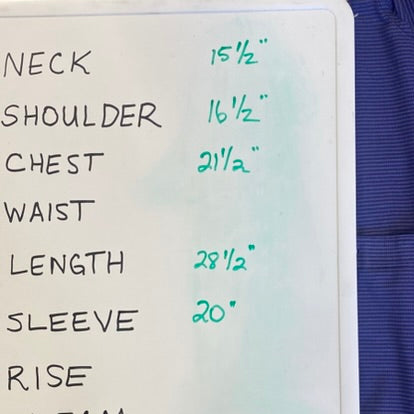 NECK 15 1/2"
SHOULDER 16 1/2"
CHEST 21 1/2"
WAIST
LENGTH 28 1/2"
SLEEVE 20"
RISE